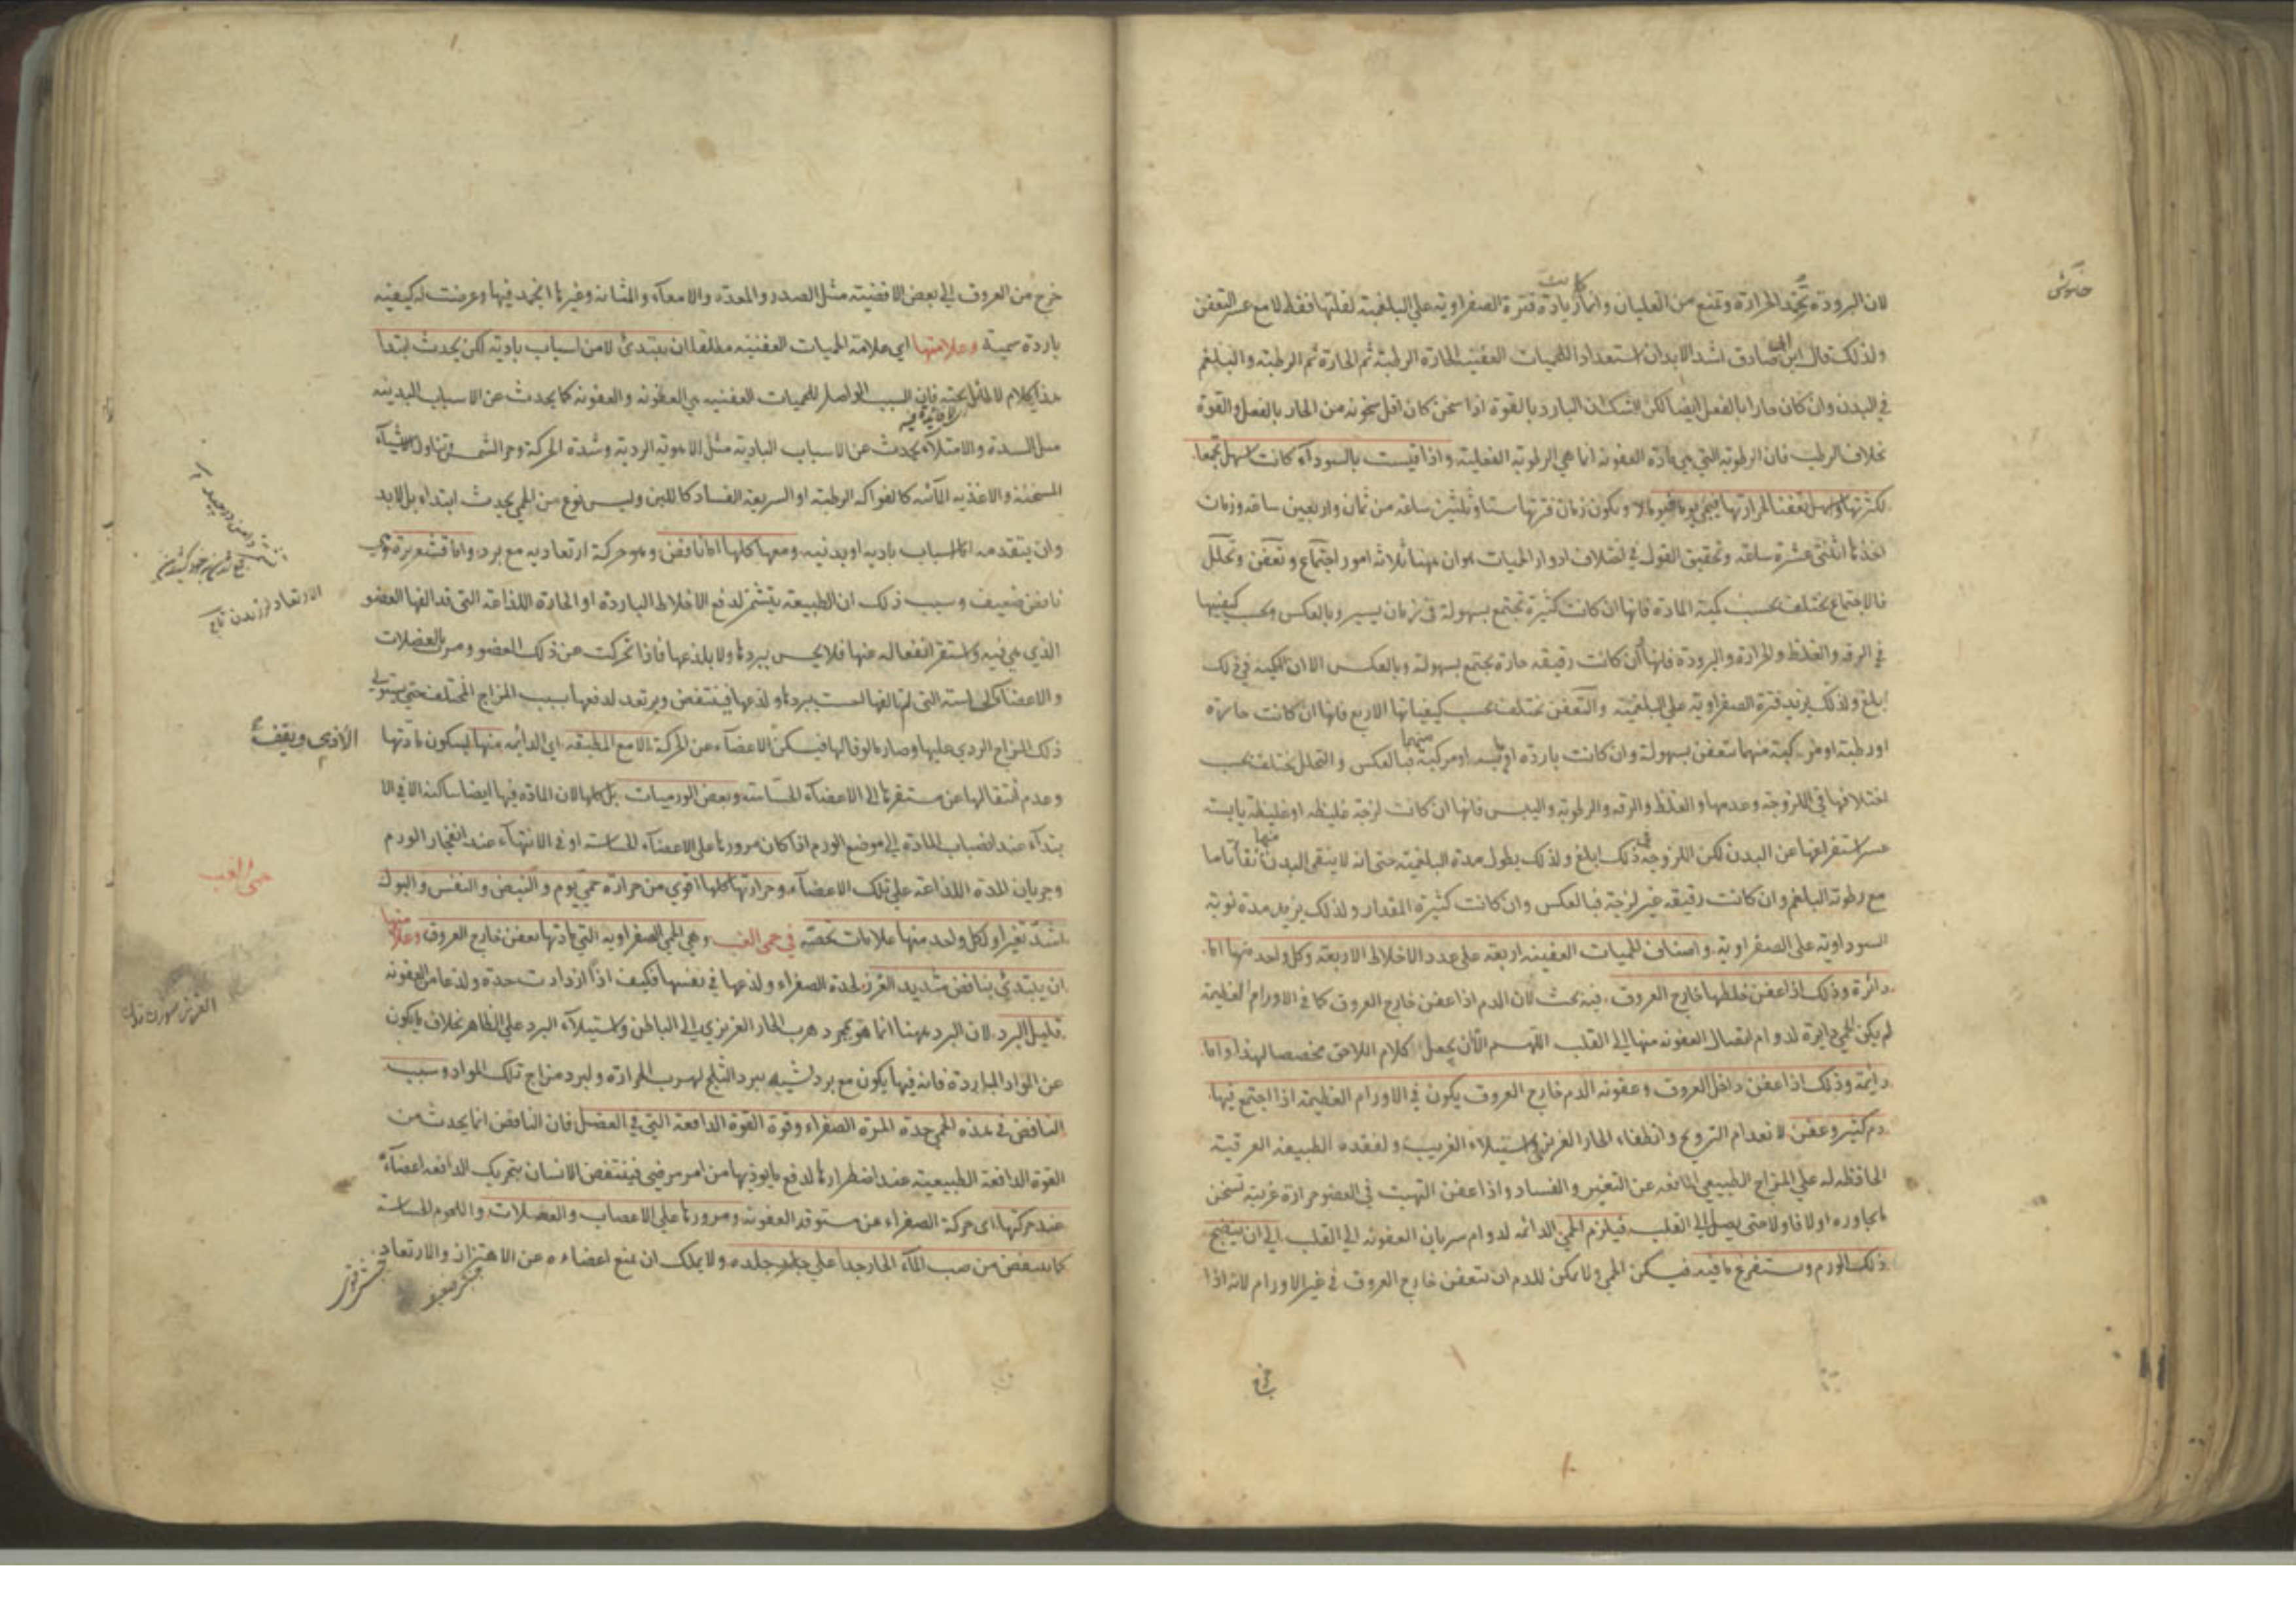 لان البرودة تخمد الحرارة وتمنع من الغليان وانما كانت زيادة فترة الصفراوية على البلغمية لقلتها فقط لا مع عسر التعفن
ولذلك قال ابن ابي صادق اشد الابدان استعدادا للحميات العفنية الحارة الرطبة ثم الحارة ثم الرطبة والبلغم
في البدن وان كان حارا بالفعل ايضا لكن الشك ان البارد بالقوة اذا سخن كان اقل سخونة من الحار بالفعل والقوة
بخلاف الرطب فان الرطوبة التي هي مادة العفونة انما هي الرطوبة الفعلية واذا قيست بالسوداء كانت اسهل تجمعا
لكثرتها واسهل تعفنا لحرارتها فيحمى يوما ويوما لا ويكون زمان فترتها ستا وثلثين ساعة من ثمان واربعين ساعة وزمان
اخذها اثنتى عشرة ساعة وتحقيق القول في اختلاف ادوار الحميات هو ان ههنا ثلاثة امور اجتماع وتعفن وتحلل
فالاجتماع يختلف بحسب كمية المادة فانها ان كانت كثيرة تجتمع بسهولة في زمان يسير وبالعكس وبحسب كيفيتها
في الرقة والغلظ والحرارة والبرودة فانها ان كانت رقيقة حارة يجتمع بسهولة وبالعكس الا ان الكمية في ذلك
ابلغ ولذلك يزيد فترة الصفراوية على البلغمية والتعفن يختلف بحسب كيفياتها الاربع فانها ان كانت حارة
او رطبة او مركبة منهما تتعفن بسهولة وان كانت باردة او يابسة او مركبة منهما فبالعكس والتحلل يختلف بحسب
اختلافها في اللزوجة وعدمها والغلظ والرقة والرطوبة واليبس فانها ان كانت لزجة غليظة او غليظة يابسة
عسر استفراغها عن البدن لكن اللزوجة في ذلك ابلغ ولذلك يطول مدة البلغمية حتى انه لا ينقى البدن منها نقاء تاما
مع رطوبة البلغم وان كانت رقيقة غير لزجة فبالعكس وان كانت كثيرة المقدار ولذلك يزيد مدة نوبة
السوداوية على الصفراوية واصناف الحميات العفنية اربعة على عدد الاخلاط الاربعة وكل واحد منها اما
دائرة وذلك اذا عفن خلطها خارج العروق فيه بحث لان الدم اذا عفن خارج العروق كما في الاورام العظيمة
لم يكن الحمى دايرة لدوام اتصال العفونة منها الى القلب اللهم الا ان يجعل كلام اللاحق مخصصا لهذا واما
دائمة وذلك اذا عفن داخل العروق وعفونة الدم خارج العروق يكون في الاورام العظيمة اذا اجتمع فيها
دم كثير وعفن لانعدام الترويح وانطفاء الحار الغريزى واستيلاء الغريب ولفقده الطبيعة العرقية
الحافظة له على المزاج الطبيعي المانعة عن التغير والفساد واذا عفن التهبت في العضو حرارة غريبة تسخن
ما يجاوره اولا فاولا حتى يصل الى القلب فيلزم الحمى الدائمة لدوام سريان العفونة الى القلب الى ان ينضج
ذلك الورم ويستفرغ ما فيه فيسكن الحمى ولا يمكن للدم ان يتعفن خارج العروق في غير الاورام لانه اذا
خرج
خرج من العروق الى بعض الافضية مثل الصدر والمعدة والامعاء والمثانة وغيرها انجمد فيها وعرضت له كيفية
باردة سمية وعلامتها اي علامة الحميات العفنية مطلقا ان يبتدئ لا من اسباب بادية لكن يحدث ابتدا
هذا كلام لا طائل تحته فان السبب الواصل للحميات العفنية هي العفونة والعفونة كما يحدث عن الاسباب البدنية
لا فائدة فيه
مثل السدة والامتلاء يحدث عن الاسباب البادية مثل الاهوية الردية وشدة الحركة وحر الشمس وتناول الاشياء
المسخنة والاغذية المائية كالفواكه الرطبة او السريعة الفساد كاللبن وليس نوع من الحمى يحدث ابتداء بل لا بد
وان يتقدمه اما اسباب بادية او بدنية ومعها كلها اما نافض وهو حركة ارتعادية مع برد واما قشعريرة وهي
نافض ضعيف وسبب ذلك ان الطبيعة يتشمر لدفع الاخلاط الباردة او الحارة اللذاعة التي قد الفها العضو
الذي هي فيه واستقر انفعاله عنها فلا يحس ببردها ولا بلذعها فاذا تحركت عن ذلك العضو ومرت بالعضلات
والاعضاء الحساسة التي لم تالفها احست ببردها ولذعها فينتفض ويرتعد لدفعها بسبب المزاج المختلف حتى يستولى
ذلك المزاج الردي عليها وصار مالوفا لها فيسكن الاعضاء عن الحركة الا مع المطبقة اي الدائمة منها ليسكون مادتها
وعدم انتقالها عن مستقرها الى الاعضاء الحساسة وبعض الورميات بل كلها لان المادة فيها ايضا ساكنة الا في الا
بتداء عند انصباب المادة الى موضع الورم اذا كان مرورها على الاعضاء الحساسة او في الانتهاء عند انفجار الورم
وجريان المدة اللذاعة على تلك الاعضاء وحرارتها كلها اقوى من حرارة حمى يوم والنبض والنفس والبول
اشد تغيرا ولكل واحد منها علامات تخصه في حمى الغب وهي الحمى الصفراوية التي مادتها تعفن خارج العروق وعلامتها
ان يبتدئ بنافض شديد الغرز لحدة الصفراء ولذعها في نفسها فكيف اذا ازدادت حدة ولذعا من العفونة
قليل البرد لان البرد ههنا انما هو بمجرد هرب الحار الغريزي الى الباطن واستيلاء البرد على الظاهر بخلاف ما يكون
عن المواد الباردة فانه فيها يكون مع برد شبيه ببرد الثلج لهرب الحرارة ولبرد مزاج تلك المواد وسبب
النافض في هذه الحمى حدة المرة الصفراء وقوة القوة الدافعة التي في العضل فان النافض انما يحدث من
القوة الدافعة الطبيعية عند اضطرارها لدفع ما يوذيها من امر مرضي فينتفض الانسان بتحريك الدافعة اعضاءه
عند حركتها اي حركة الصفراء عن مستوقد العفونة ومرورها على الاعصاب والعضلات واللحوم الحساسة
كما ينتفض من صب الماء الحار جدا على جلده ولا يملك ان يمنع اعضاءه عن الاهتزاز والارتعاد
حمى الغب